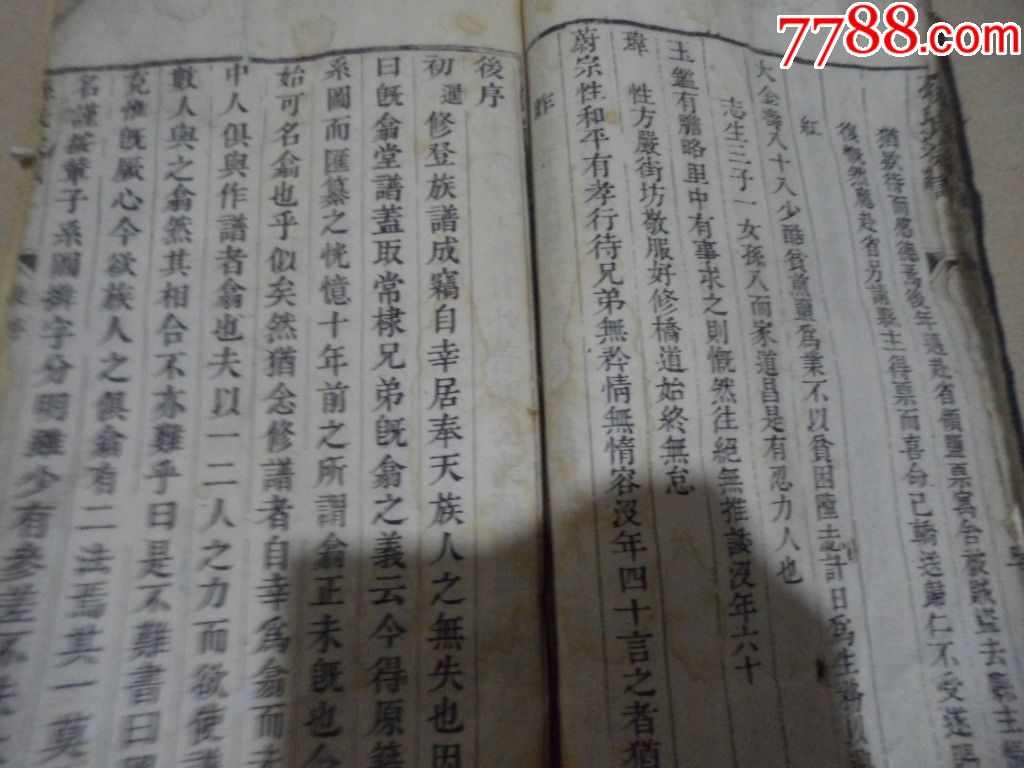 7788.com
猶欲待而鬻德焉後年過赴省領鹽票寓合
後慨然應赴省另請縣主得票而喜命已轎送歸仁不受遂
紅
大金壽八十入少酷貧煎鹽爲業不以貧因墮志計日爲生
志生三子一女孫八而家道昌是有忍力人也
玉鑑有膽略里中有事求之則慨然往絕無推諉沒年六十
瑋 性方嚴街坊敬服好修橋道始終無怠
蔚宗性和平有孝行待兄弟無矜情無惰容沒年四十言之者猶
後序
初暹修登族譜成竊自幸居奉天族人之無失也因
曰旣翕堂譜蓋取常棣兄弟旣翕之義云今得原籍
系圖而匯纂之恍憶十年前之所謂翕正未旣也今
始可名翕也乎似矣然猶念修譜者自幸爲翕而
中人俱與作譜者翕也夫以一二人之力而欲使
數人與之翕然其相合不亦難乎曰是不難書曰
克惟旣厥心今欲族人之俱翕有二法焉其一莫
名謹按輩子系圖撰字分明雖少有參差不